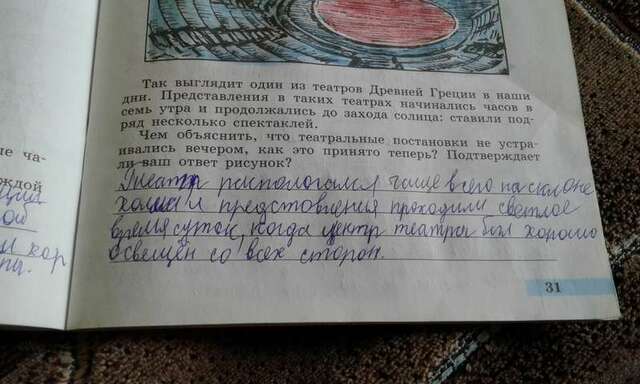 Так выглядит один из театров Древней Греции в наши
дни. Представления в таких театрах начинались часов в
семь утра и продолжались до захода солнца: ставили под-
ряд несколько спектаклей.
Чем объяснить, что театральные постановки не устра-
ивались вечером, как это принято теперь? Подтверждает
ли ваш ответ рисунок?
Театр распологался чаще всего на склоне
холма и представления проходили светлое
время суток, когда центр театра был хорошо
освещён со всех сторон.
31
ые ча-
ждой
ой
и хор